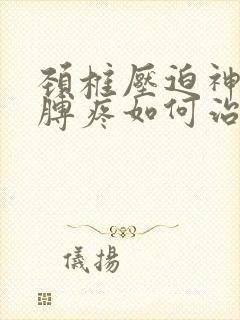 頚椎壓迫神
膊疼如何治
儀揚